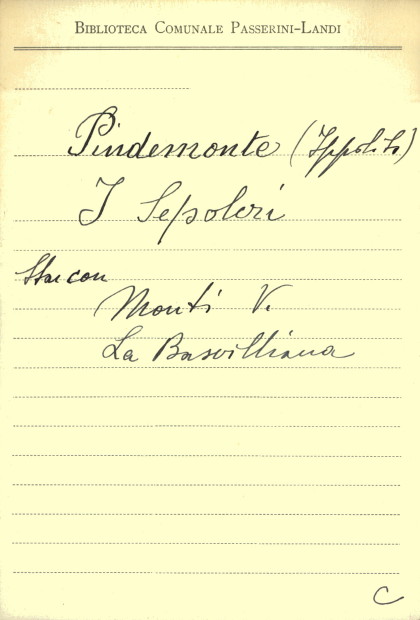 BIBLIOTECA COMUNALE PASSERINI-LANDI
Pindemonte (Ippolito)
I Sepolcri
Sta con
Monti V.
La Basvilliana
C